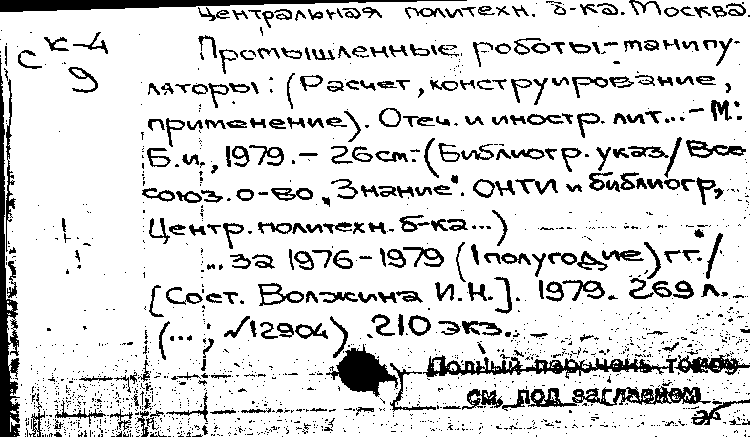 Центральная политехн. б-ка. Москва.
С К-4
9
Промышленные роботы-манипу-
ляторы: (Расчет, конструирование,
применение). Отеч. и иностр. лит...- М:
Б.и., 1979. - 26см.-(Библиогр. указ./Все
союз. о-во "Знание". ОНТИ и библиогр,
Центр. политехн. б-ка...)
... за 1976-1979 (1 полугодие) гг./
[Сост. Волжина И.Н.]. 1979. 269 л.
(...; √12904) 210 экз.
Полный перечень томов
см. под заглавием